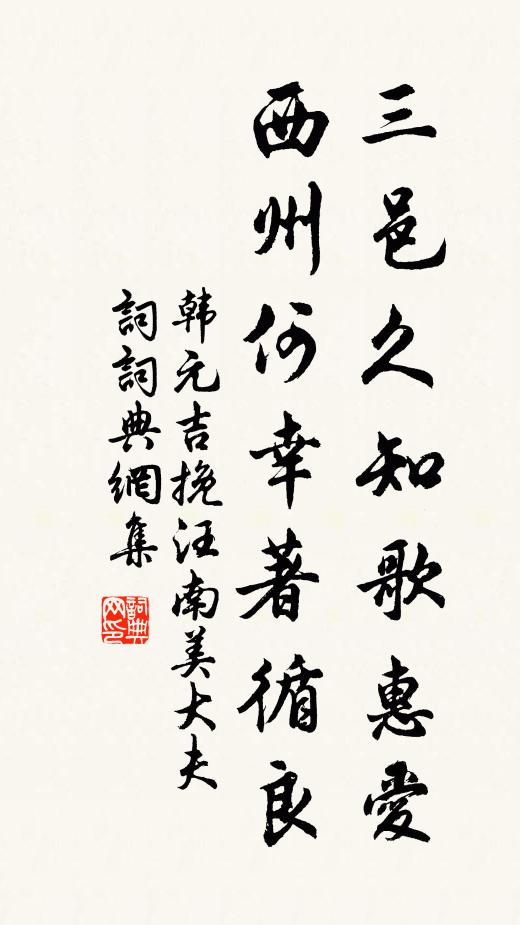 三邑久知歌惠愛
西州何幸著循良
韩元吉挽汪南美大夫
詞詞典網集
詞典网印